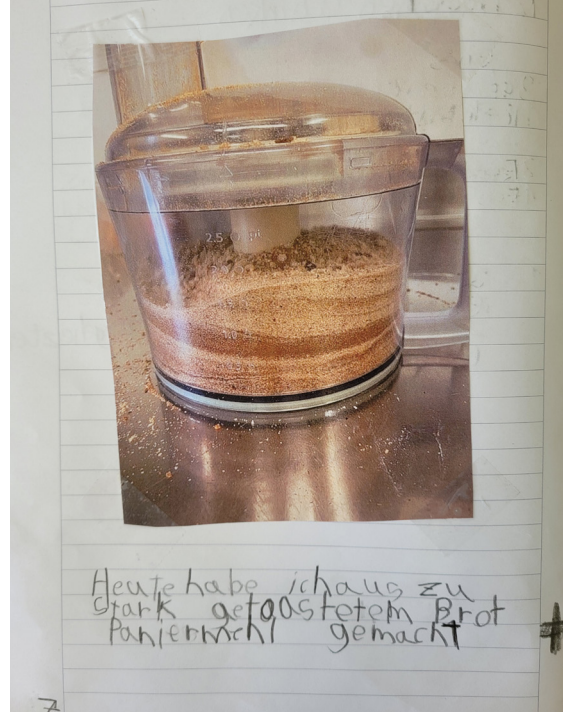 2.5
Heute habe ich aus zu
stark getoastetem Brot
Paniermehl gemacht